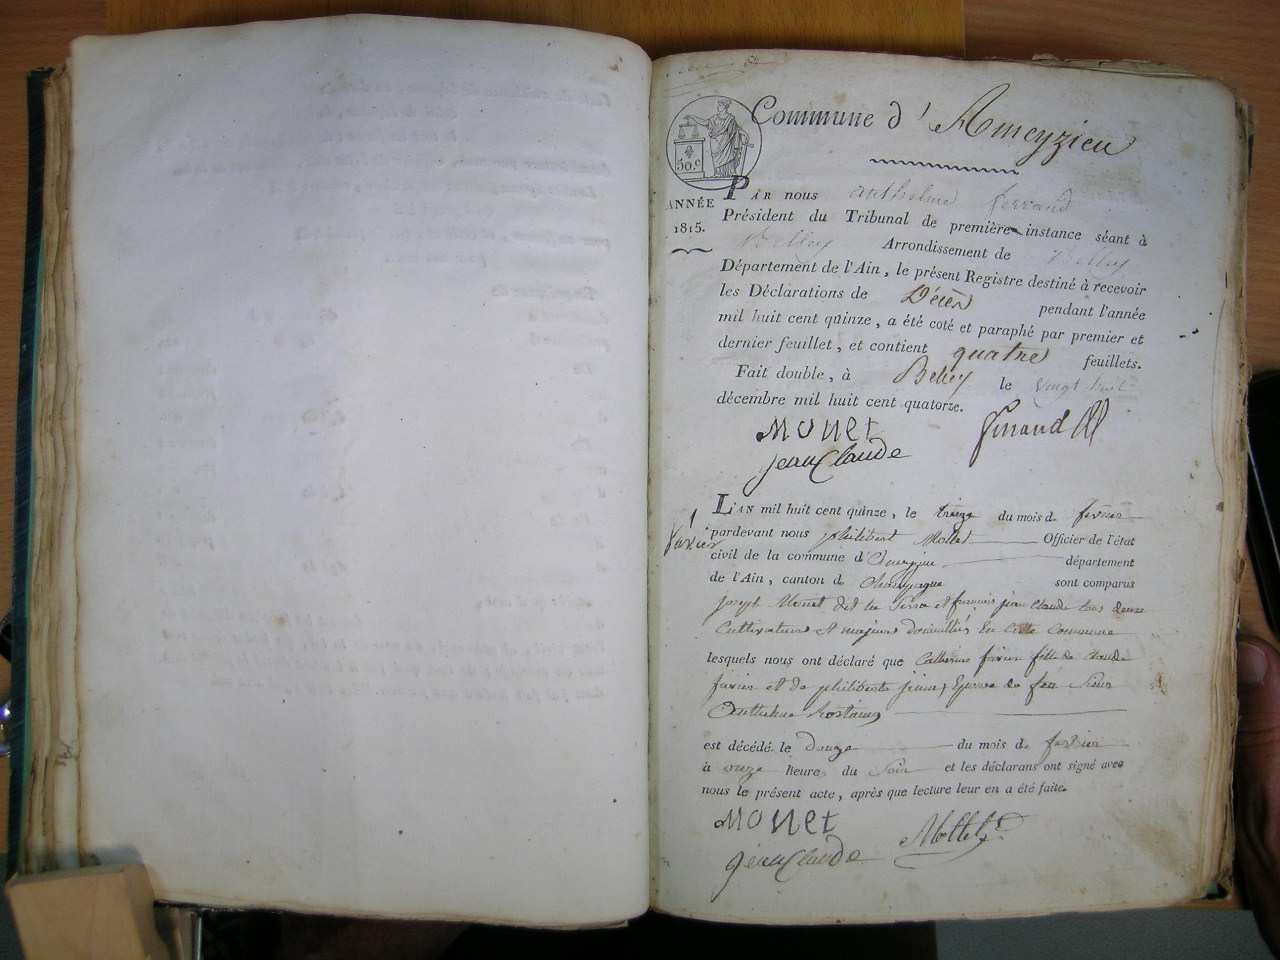 Commune d'Ameyzieu
50.c
ANNÉE
1815.
PAR nous anthelme ferrand
Président du Tribunal de première instance séant à
Belley Arrondissement de Belley
Département de l'Ain, le présent Registre destiné à recevoir
les Déclarations de Décès pendant l'année
mil huit cent quinze, a été coté et paraphé par premier et
dernier feuillet, et contient quatre feuillets.
Fait double, à Belley le vingt huit
décembre mil huit cent quatorze.
MONET
jean Claude
L'AN mil huit cent quinze, le treize du mois de fevrier
pardevant nous philibert Mollet Officier de l'état
civil de la commune d'Ameyzieu département
de l'Ain, canton de Champagne sont comparus
joseph Monet dit la et françois jean Claude tous deux
Cultivateurs et majeurs domiciliés En Cette Commune
lesquels nous ont déclaré que Catherine favier fille de Claude
favier et de philiberte Epouse de feu Sieur
Anthelme Rostaing
est décédé le douze du mois de fevrier
à onze heure du Soir et les déclarans ont signé avec
nous le présent acte, après que lecture leur en a été faite.
MONET
jean Claude Mollet